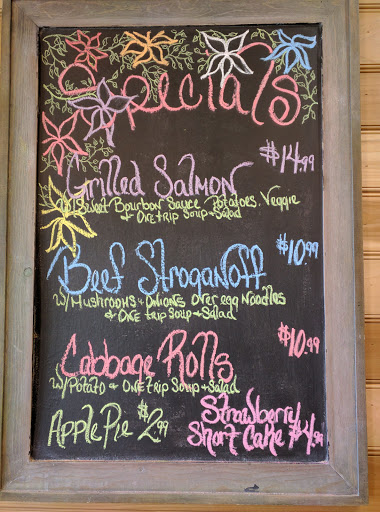 Specials
Grilled Salmon $14.99
w/ Sweet Bourbon Sauce Potatoes, Veggie
& One trip Soup & Salad
Beef Stroganoff $10.99
w/ Mushrooms & Onions over egg Noodles
& One trip Soup & Salad
Cabbage Rolls $10.99
w/ Potato & One trip Soup & Salad
Apple Pie $2.99
Strawberry
Short Cake $4.99